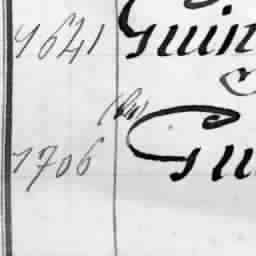 1641 Guin
1706 Gu